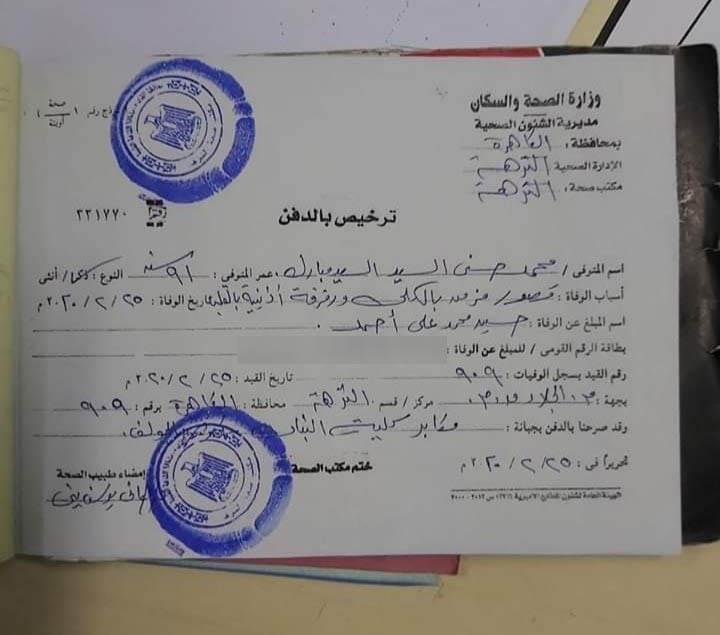 وزارة الصحة والسكان
مديرية الشئون الصحية
بمحافظة: القاهرة
الإدارة الصحية: النزهة
مكتب صحة: النزهة
صحة
نموذج رقم ١
٢٣١٧٧٠
ترخيص بالدفن
اسم المتوفى / محمد حسنى السيد السيد مبارك، عمر المتوفى: ٩١ سنة النوع: ذكر / أنثى
أسباب الوفاة: قصور مزمن بالكلى ورفرفة أذينية بالقلب تاريخ الوفاة: ٢٥ / ٢ / ٢٠٢٠ م
اسم المبلغ عن الوفاة: حسيد محمد على أحمد.
بطاقة الرقم القومى / للمبلغ عن الوفاة:
رقم القيد بسجل الوفيات: ٩٠٩ تاريخ القيد: ٢٥ / ٢ / ٢٠٢٠ م
بجهة: مركز / قسم: النزهة محافظة: القاهرة برقم: ٩٠٩
وقد صرحنا بالدفن بجبانة: مقابر كلية البنات
تحريراً فى: ٢٥ / ٢ / ٢٠٢٠ م
ختم مكتب الصحة
إمضاء طبيب الصحة
الهيئة العامة لشئون المطابع الأميرية